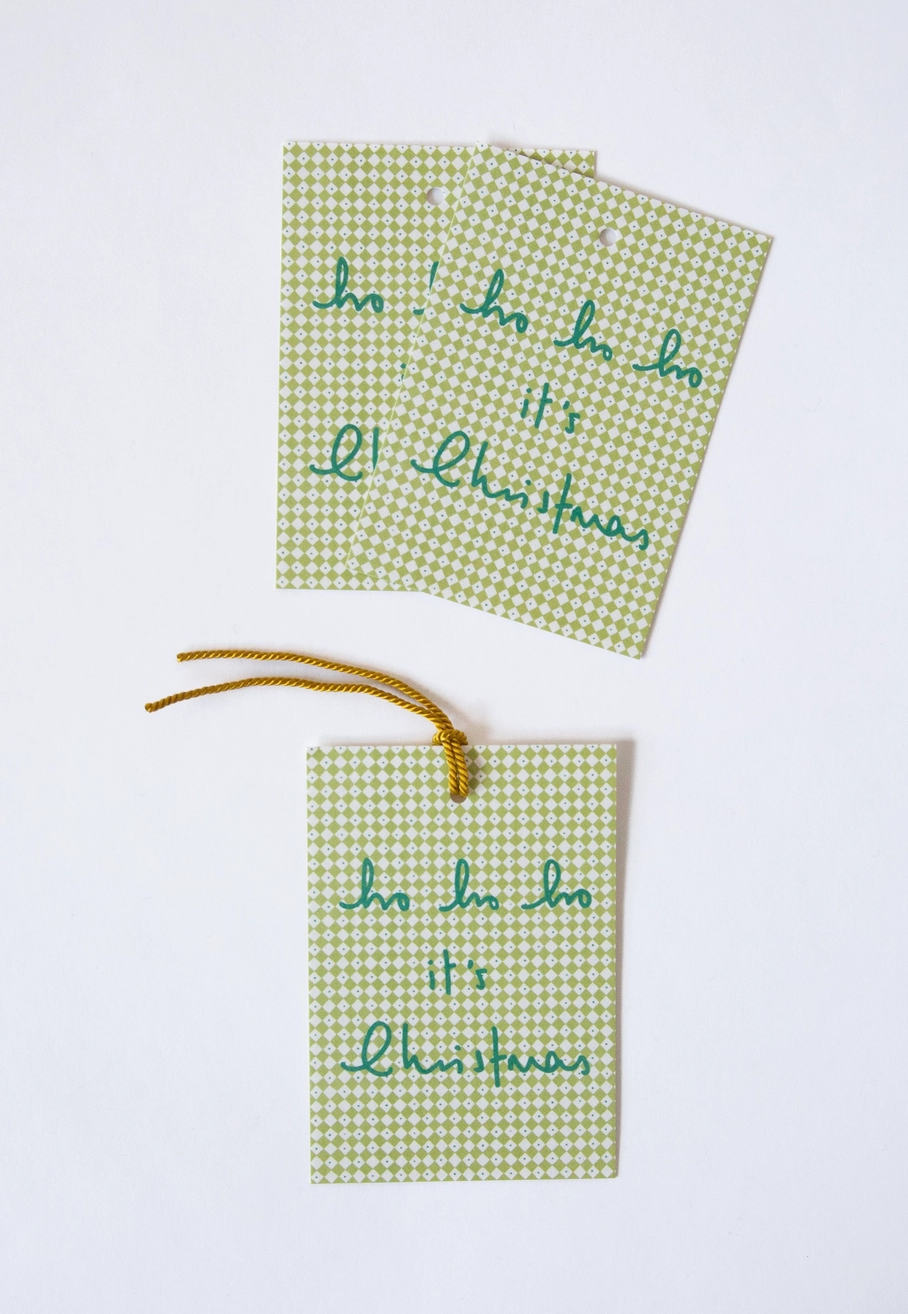 ho
ho ho ho
it's
Christmas
ho ho ho
it's
Christmas